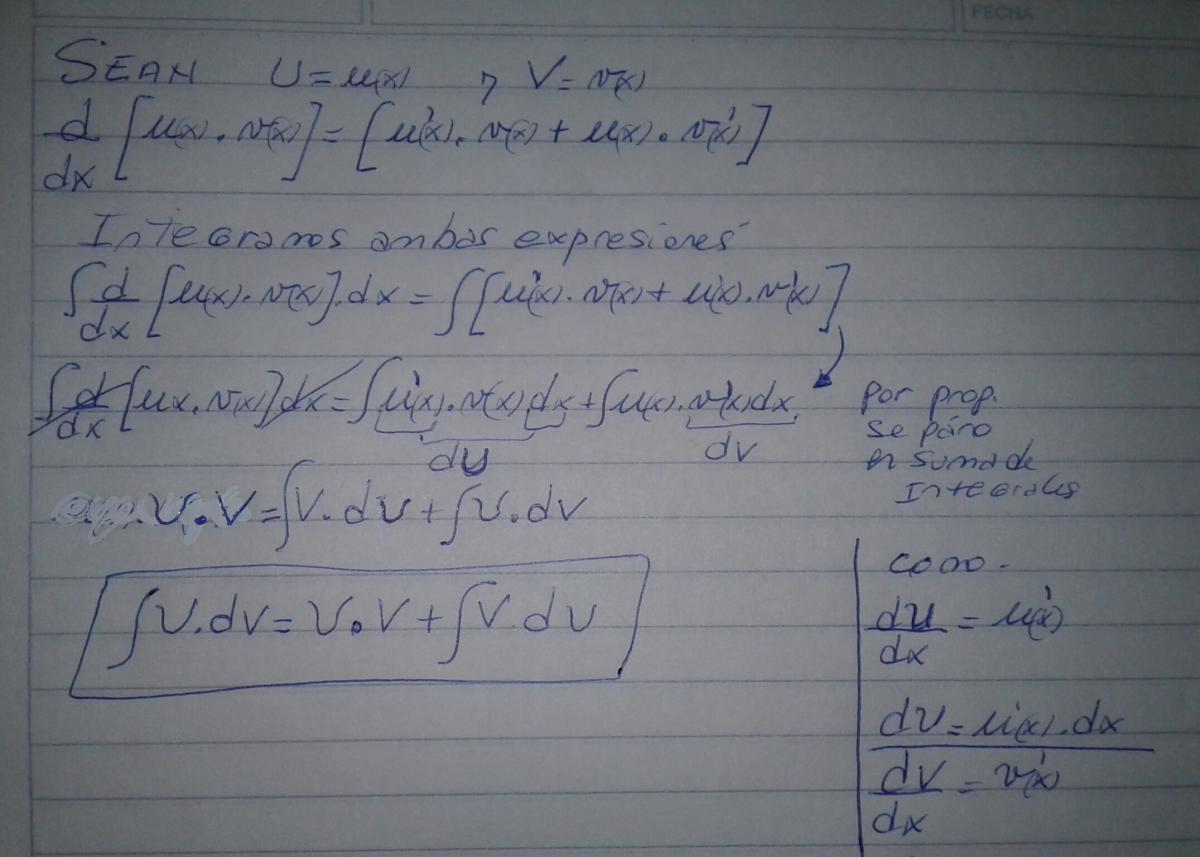 FECHA
SEAN U = u(x) y V = v(x)
d/dx [u(x) . v(x)] = [u'(x) . v(x) + u(x) . v'(x)]
Integramos ambas expresiones
∫ d/dx [u(x) . v(x)] . dx = ∫ [u'(x) . v(x) + u(x) . v'(x)]
∫ d/dx [ux . v(x)] dx = ∫ u'(x) . v(x) dx + ∫ u(x) . v'(x) dx
dU dV
Por prop.
se paro
en suma de
Integrales
U . V = ∫ V . dU + ∫ U . dV
∫ U . dV = U . V + ∫ V . dU
como .
dU/dx = u'(x)
dU = u'(x) . dx
dV/dx = v'(x)